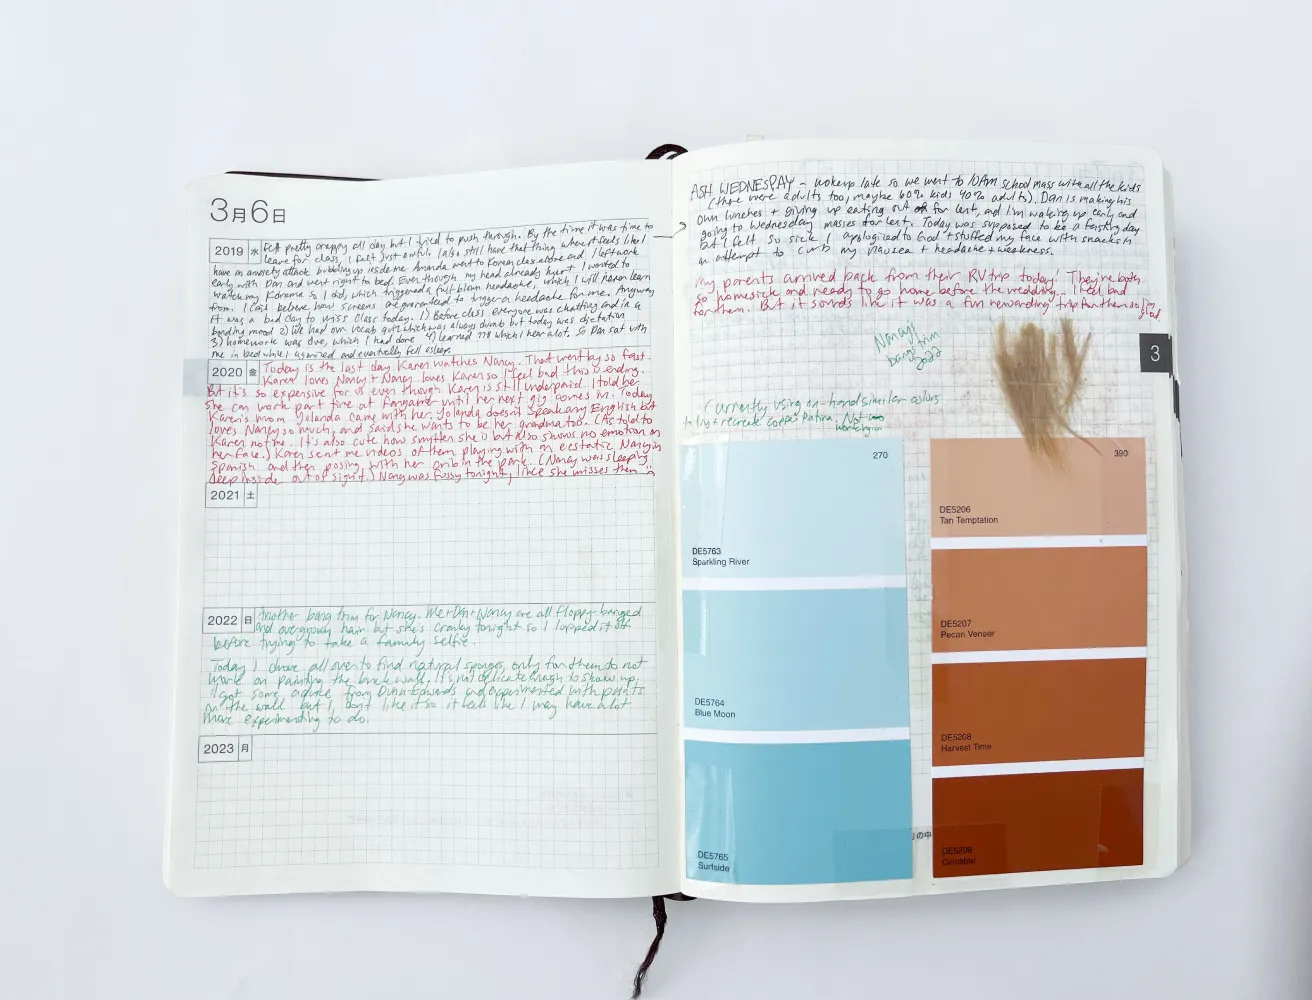 3月6日
2019 水 Felt pretty crappy all day but I tried to push through. By the time it was time to
leave for class, I felt just awful. I also still have that thing where it feels like I
have an anxiety attack bubbling up inside me. Amanda went to Korean class alone and I left work
early with Dan and went right to bed. Even though my head already hurt I wanted to
watch my Kdrama so I did, which triggered a full blown headache, which I will never learn
from. I can't believe how screens are guaranteed to trigger a headache for me. Anyway
it was a bad day to miss class today. 1) Before class everyone was chatting and in a
bonding mood 2) We had our vocab quiz which was always dumb but today was dictation
3) homework was due, which I had done 4) learned which I hear a lot. So Dan sat with
me in bed while I agonized and eventually fell asleep.
2020 金 Today is the last day Karen watches Nancy. That went by so fast.
Karen loves Nancy + Nancy loves Karen so I feel bad this is ending.
But it's so expensive for us even though Karen is still underpaid. I told her
she can work part time at until her next gig comes in. Today
Karen's mom Yolanda came with her. Yolanda doesn't speak any English but
loves Nancy so much, and said she wants to be her grandma too. (As told to
Karen not me. It's also cute how smitten she is but also shows no emotion on
her face.) Karen sent me videos of them playing with an ecstatic Nancy in
Spanish and then posing with her in the park. (Nancy was sleeping
deep inside out of sight.) Nancy was fussy tonight, like she misses them
2021 土
2022 日 Another bang trim for Nancy. Me + Dan + Nancy are all floppy-banged
and overgrown hair but she's cranky tonight so I lopped it off
before trying to take a family selfie.
Today I drove all over to find natural sponges, only for them to not
work on painting the brick wall. It's not delicate enough to show up.
I got some advice from Dunn-Edwards and experimented with paints
on the wall but I don't like it so it feels like I may have a lot
more experimenting to do.
2023 月
ASH WEDNESDAY – woke up late so we went to 10AM school mass with all the kids
(there were adults too, maybe 60% kids 40% adults). Dan is making his
own lunches + giving up eating out for lent, and I'm waking up early and
going to Wednesday masses for lent. Today was supposed to be a fasting day
but I felt so sick I apologized to God + stuffed my face with snacks in
an attempt to curb my nausea + headache + weakness.
My parents arrived back from their RV trip today! They're both
so homesick and ready to go home before the wedding. I feel bad
for them. But it sounds like it was a fun rewarding trip for them so I'm
glad
Nancy's
bang trim
2022
Currently using on-hand similar colors
to try + recreate copper patina. Not
working
3
270
DE5763
Sparkling River
DE5764
Blue Moon
DE5765
Surfside
390
DE5206
Tan Temptation
DE5207
Pecan Veneer
DE5208
Harvest Time
DE5209
Cinnabar
の中